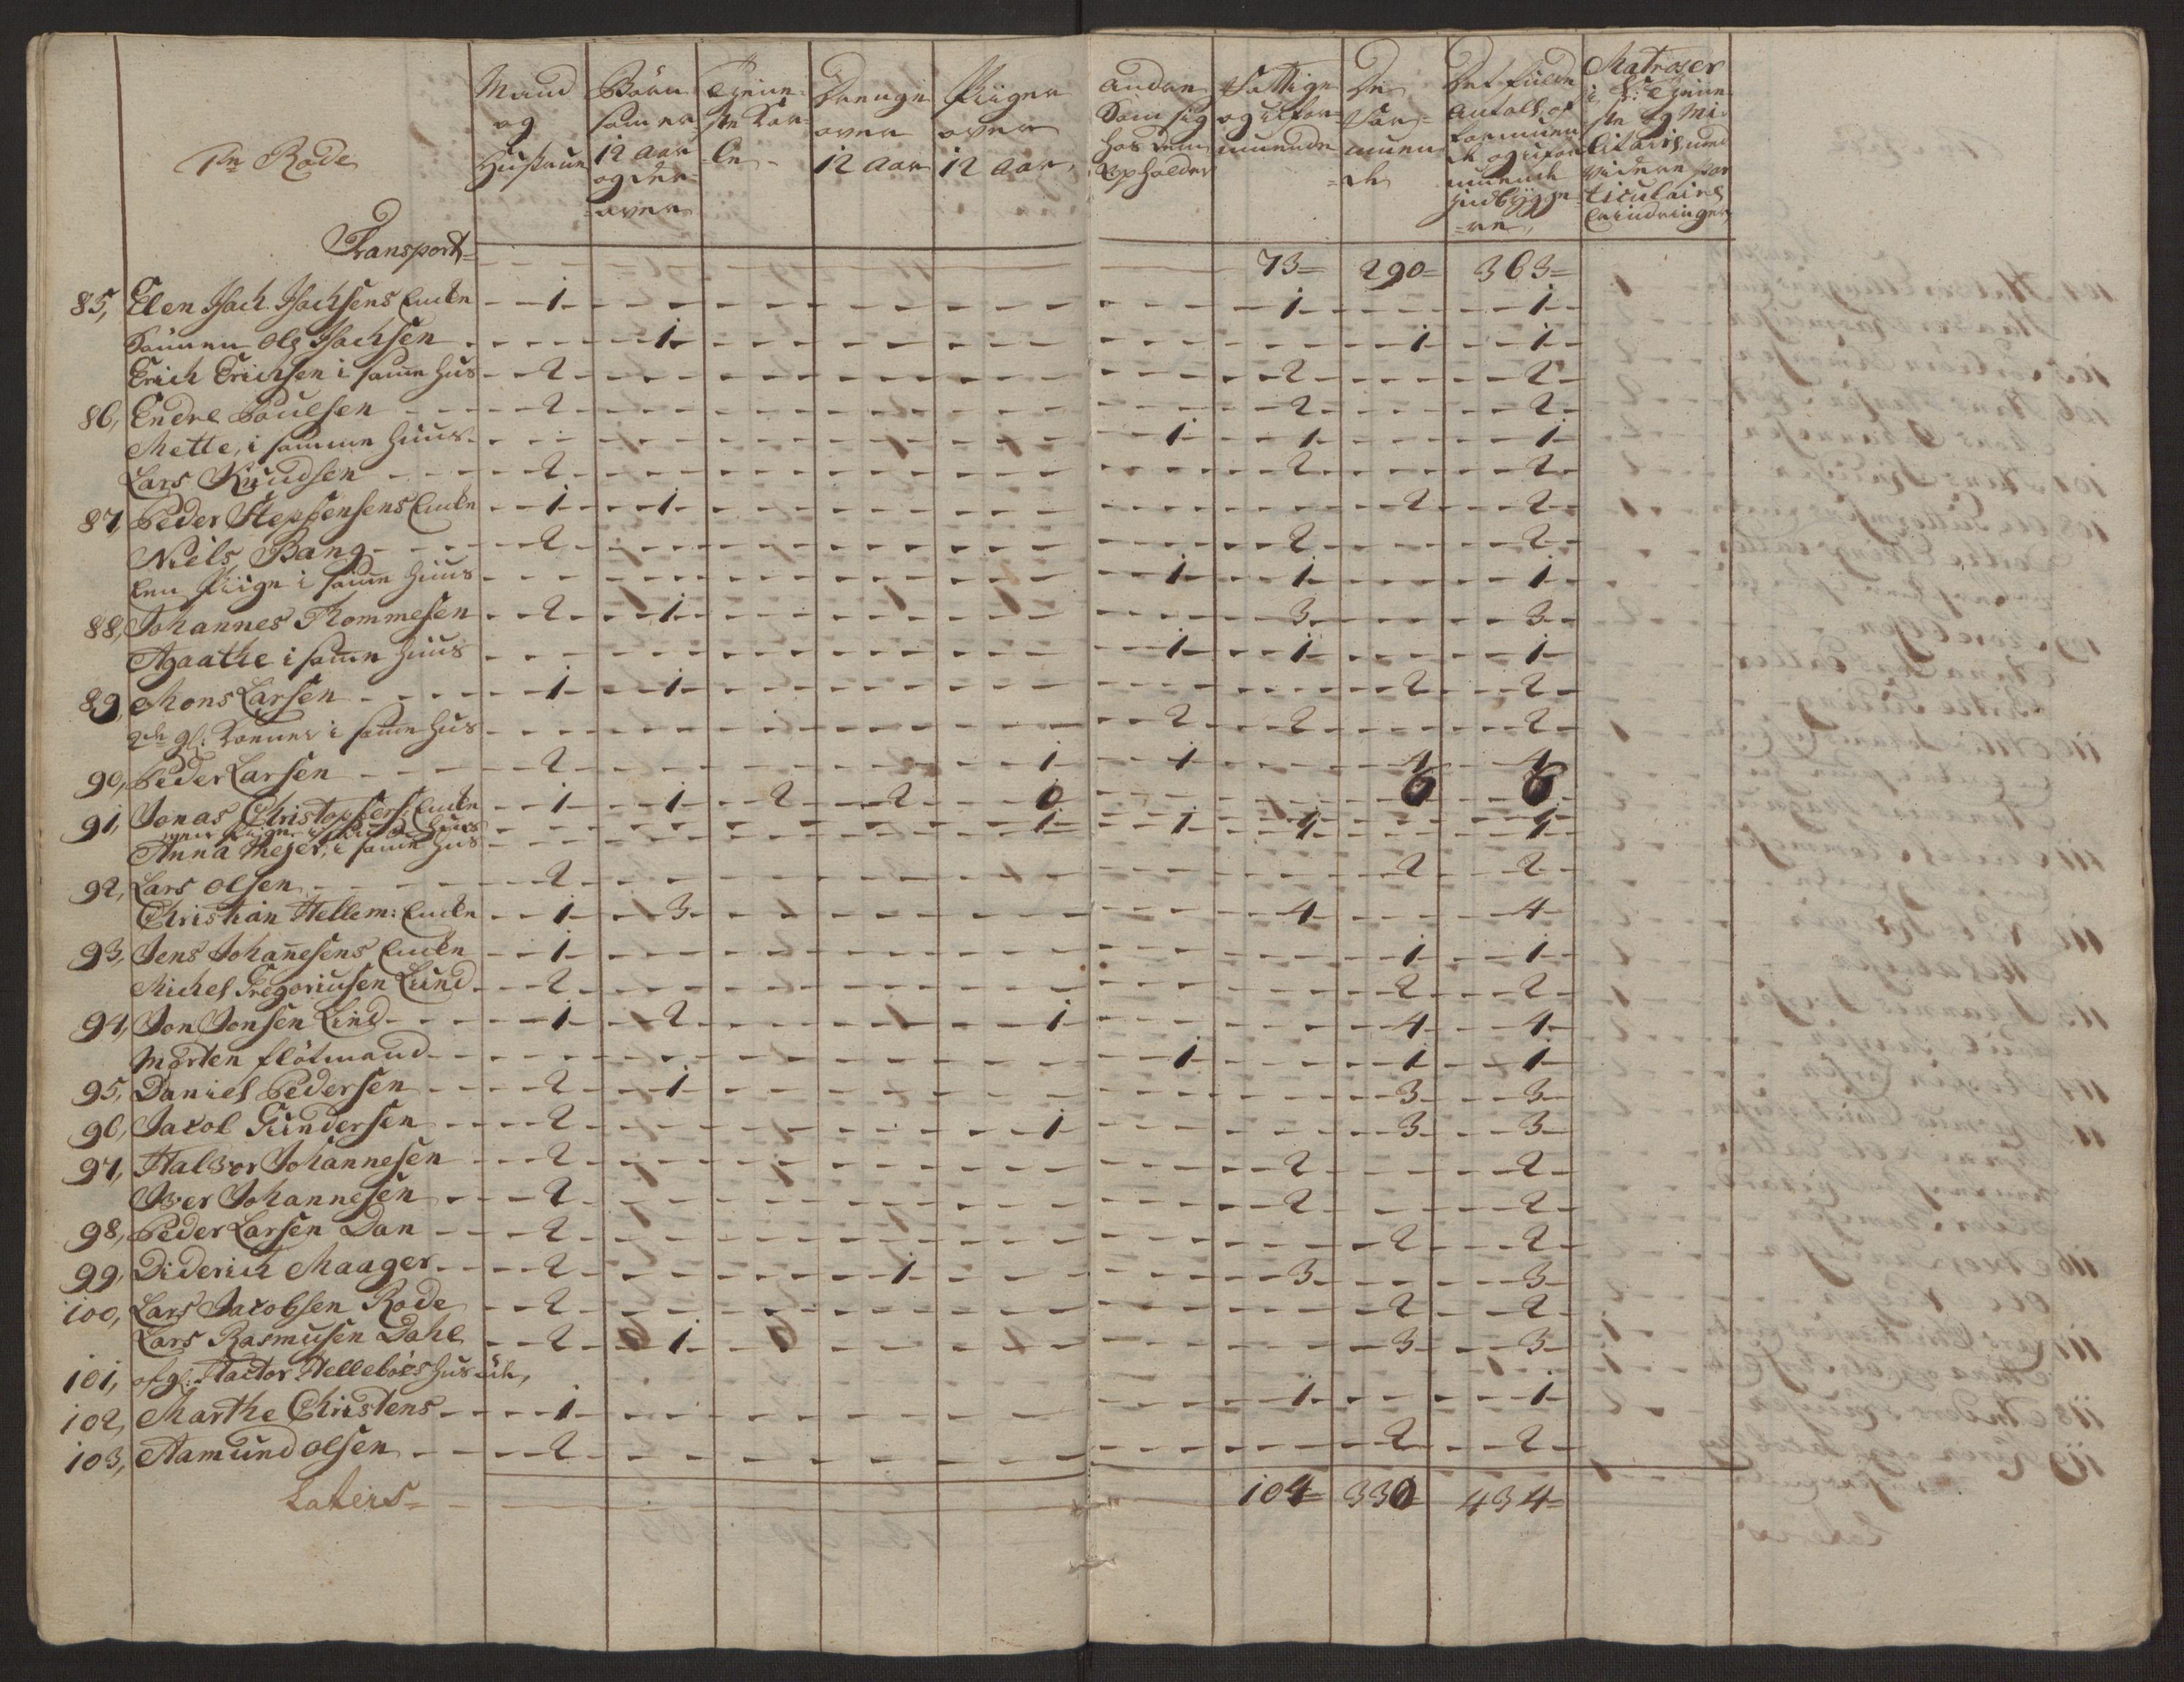 1te Rode
Mand og Hustrue
Børn som er 12 Aar og der over
Tjeneste Kar le
Drenge over 12 Aar
Piiger over 12 Aar,
Andre Som sig hos dem Opholder
Fattige og ufor muende
De For muen de
Det fulde Antall af formuen de og ufor muende Indbygge re,
Matroser i K: Tjene ste og Mi litaire, med videre par ticulaire Erindringer
Transport= 73= 290= 363=
85, Elen Isach Isachsens Encke 1 1 1
Sønnen Ole Isachsen 1 1 1
Erich Erichsen i samme Hus 2 2 2
86, Endre Poulsen 2 2 2
Mette, i samme Huus 1 1 1
Lars Knudsen 2 2 2
87, Peder Stephensens Encke 1 1 2 2
Niels Bang 2 2 2
Een Piige i samme Huus 1 1 1
88, Johannes Thommesen 2 1 3 3
Agaathe i samme Huus 1 1 1
89, Mons Larsen 1 1 2 2
2de gl: Koener i samme Hus 2 2 2
90, Peder Larsen 2 1 1 4 4
91, Jonas Christophers: Encke 1 1 2 2 0 6 6
1
Anna Mejer, i samme Hus 1 1 1
92, Lars Olsen 2 2 2
Christian Hellem: Encke 1 3 4 4
93, Jens Johannesens Encke 1 1 1
Michel Gregoriusen Lund 2 2 2
94, Jon Jonsen Lind 1 2 1 4 4
Morten Flötmand 1 1 1
95, Daniel Pedersen 2 1 3 3
96, Jacob Gundersen 2 1 3 3
97, Halvor Johannesen 2 2 2
Iver Johannesen 2 2 2
98, Peder Larsen Dan 2 2 2
99, Diderich Maager 2 1 3 3
100, Lars Jacobsen Rode 2 2 2
Lars Rasmusen Dahl 2 1 3 3
101, Factor Helleboes Hus
102, Marthe Christens 1 1 1
103, Aamund Olsen 2 2 2
Lateris= 104= 330= 434=